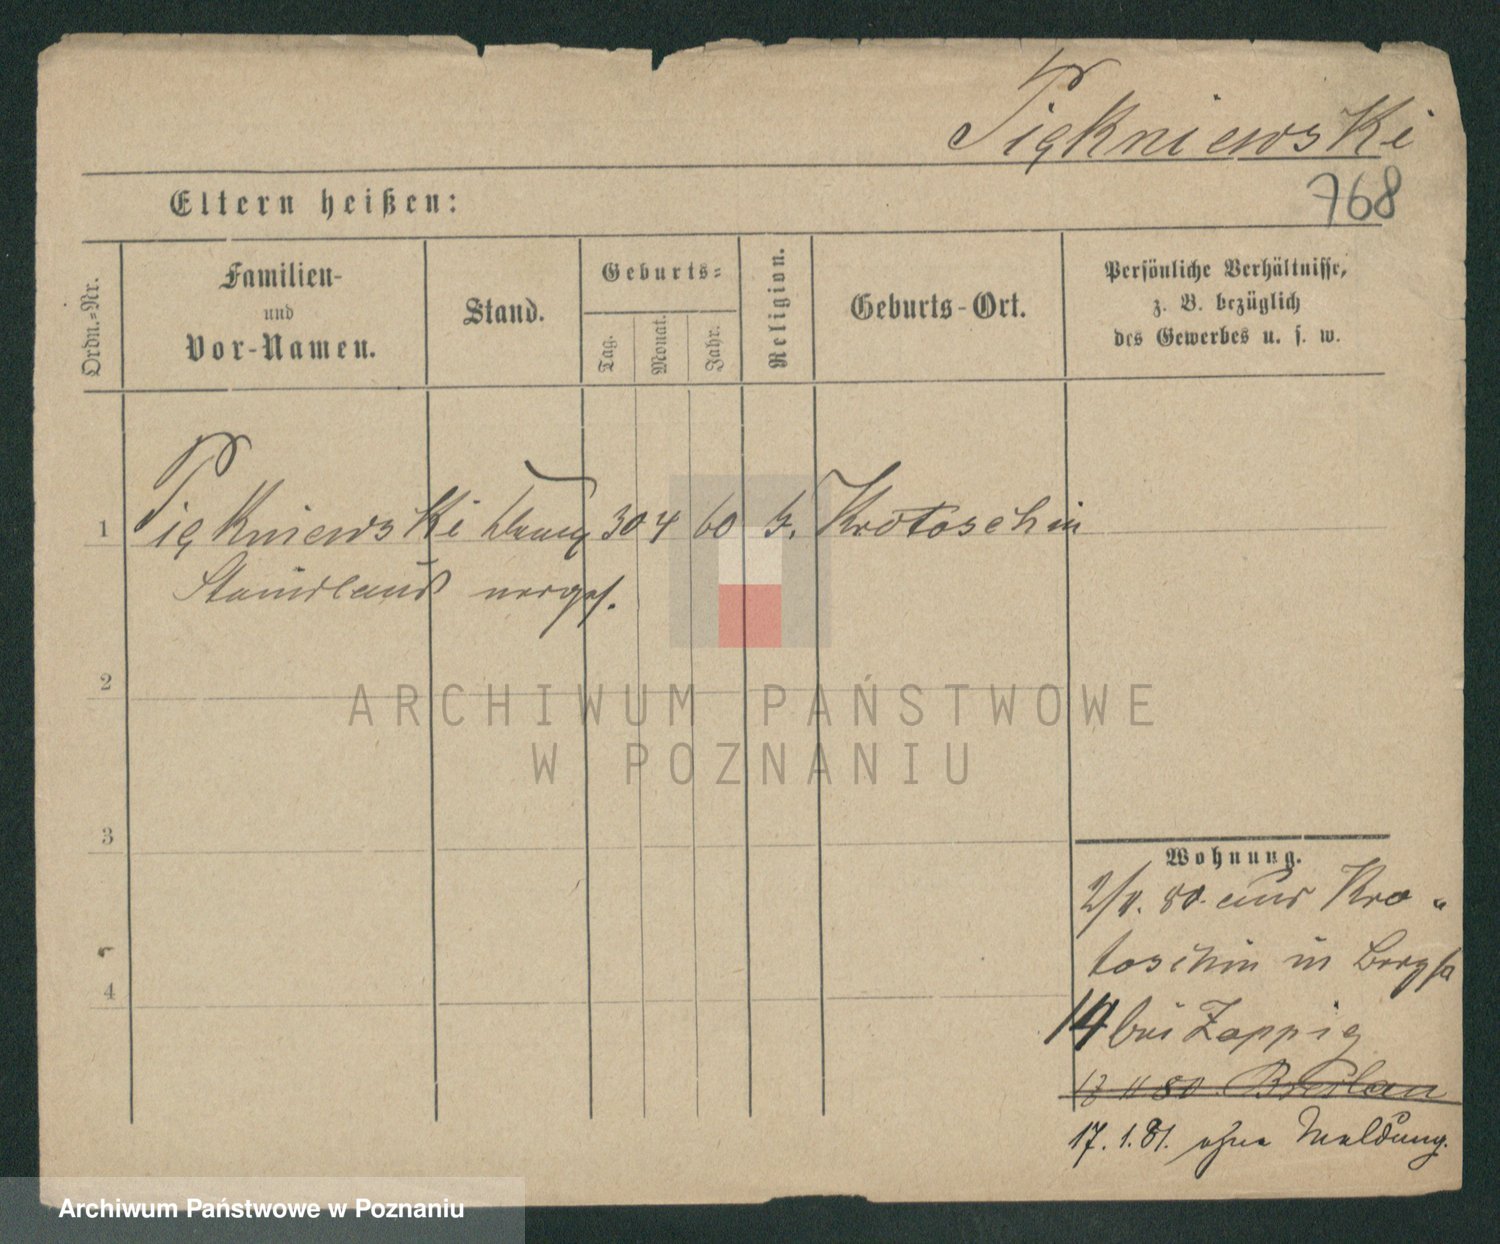 Piękniewski
768
Eltern heißen:
Ordn.-Nr.
Familien-
und
Vor-Namen.
Stand.
Geburts-
Tag.
Monat.
Jahr.
Religion.
Geburts-Ort.
Persönliche Verhältnisse,
z. B. bezüglich
des Gewerbes u. s. w.
1 Piękniewski 30 4 60 k. Krotoschin
Stanislaus
2
3
4
Wohnung.
2/11. 80. aus Kro-
toschin in Bergstr
14 bei Zappig
18 11 80 Breslau
17. 1. 81. ohne Meldung.
ARCHIWUM PAŃSTWOWE
W POZNANIU
Archiwum Państwowe w Poznaniu